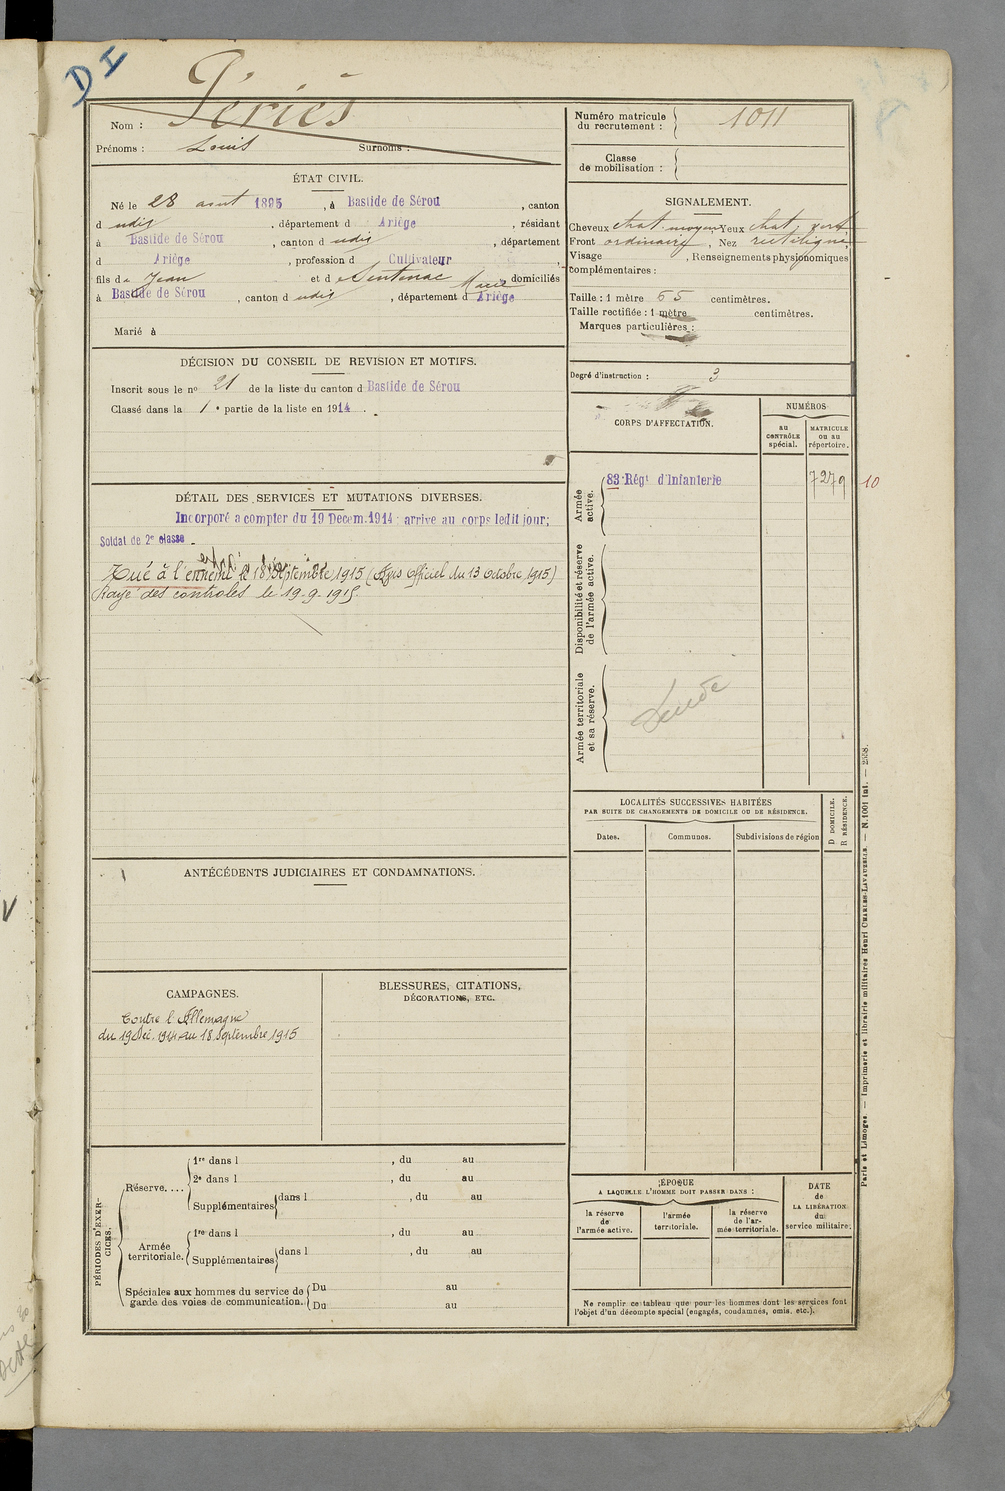 D I
Périès
Nom :
Prénoms : Louis Surnoms :
ÉTAT CIVIL.
Né le 28 août 1895, à Bastide de Sérou, canton
d udig, département d Ariège, résidant
à Bastide de Sérou, canton d udig, département
d Ariège, profession d Cultivateur
fils de Jean et de Sentenac Marie domiciliés
à Bastide de Sérou, canton d udig, département d Ariège
Marié à
DÉCISION DU CONSEIL DE REVISION ET MOTIFS.
Inscrit sous le no 21 de la liste du canton d Bastide de Sérou
Classé dans la 1e partie de la liste en 1914.
DÉTAIL DES SERVICES ET MUTATIONS DIVERSES.
Incorporé a compter du 19 Decem. 1914 arrive au corps ledit jour;
Soldat de 2e classe
Tué à l'ennemi le 18 Septembre 1915 (Avis Officiel du 13 Octobre 1915)
Rayé des controles le 19.9.1915
ANTÉCÉDENTS JUDICIAIRES ET CONDAMNATIONS.
CAMPAGNES.
Contre l'Allemagne
du 19 Déc. 1914 au 18 Septembre 1915
BLESSURES, CITATIONS,
DÉCORATIONS, ETC.
PÉRIODES D'EXERCICES.
Réserve....
1re dans l , du au
2e dans l , du au
Supplémentaires dans l , du au
Armée territoriale.
1re dans l , du au
Supplémentaires dans l , du au
Spéciales aux hommes du service de garde des voies de communication.
Du au
Du au
Numéro matricule du recrutement : 1011
Classe de mobilisation :
SIGNALEMENT.
Cheveux chat. moyen Yeux chat,
Front ordinaire, Nez rectiligne,
Visage , Renseignements physionomiques
complémentaires :
Taille : 1 mètre 65 centimètres.
Taille rectifiée : 1 mètre centimètres.
Marques particulières :
Degré d'instruction : 3
CORPS D'AFFECTATION.
NUMÉROS
au CONTRÔLE spécial.
MATRICULE ou au répertoire.
Armée active.
83 Régt d'Infanterie 7279 10
Disponibilité et réserve de l'armée active.
Armée territoriale et sa réserve.
LOCALITÉS SUCCESSIVES HABITÉES
PAR SUITE DE CHANGEMENTS DE DOMICILE OU DE RÉSIDENCE.
Dates. Communes. Subdivisions de région
D DOMICILE.
R RÉSIDENCE.
ÉPOQUE
A LAQUELLE L'HOMME DOIT PASSER DANS :
la réserve de l'armée active.
l'armée territoriale.
la réserve de l'armée territoriale.
DATE de LA LIBÉRATION du service militaire.
Ne remplir ce tableau que pour les hommes dont les services font
l'objet d'un décompte spécial (engagés, condamnés, omis, etc.).
Paris et Limoges. — Imprimerie et librairie militaires Henri CHARLES-LAVAUZELLE. — N. 1001 Int. — 2558.